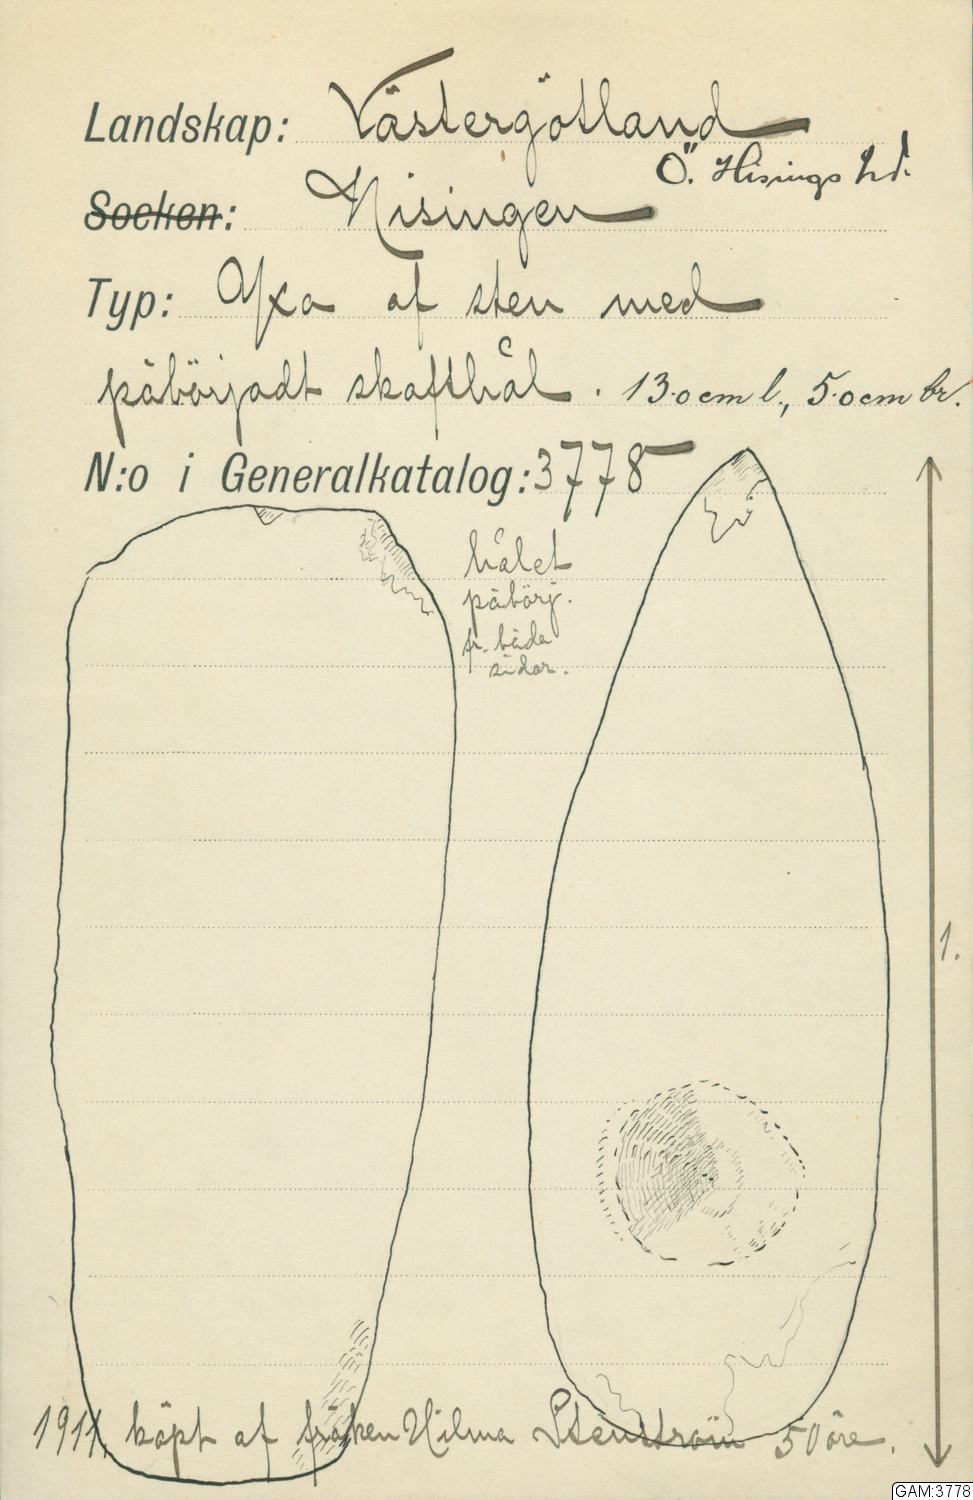 Landskap: Västergötland
Ö. Hisings hd.
Socken: Hisingen
Typ: Yxa af sten med
påbörjadt skafthål. 13.0 cm l., 5.0 cm br.
N:o i Generalkatalog: 3778
hålet
påbörj.
fr. båda
sidor.
1.
1911 köpt af fröken Hilma Stenström 50 öre.
GAM:3778